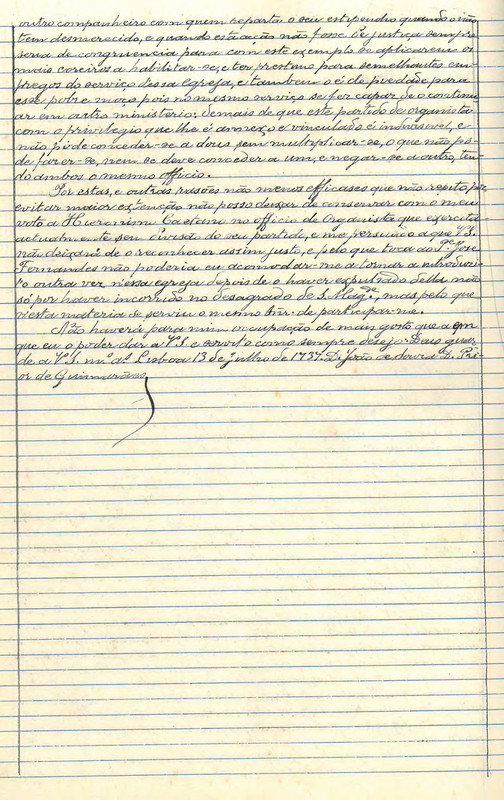 outro companheiro com quem reparta o seu estipendio quando o não
tem desmerecido, e quando esta acção não fosse de justiça sempre
seria de congruencia para com este exemplo se applicarem os
mais coreiros a habilitar-se, e ter prestimo para semelhantes em-
pregos do serviço dessa Egreja, e tambem o é de piedade para
esse pobre moço, pois no mesmo serviço se fez capaz de o continu-
ar em outro ministerio: demais de que este partido de organista
com o privilegio que lhe é annexo e vinculado é indivisivel, e
não póde conceder-se a dous sem multiplicar-se, o que não pó-
de fazer-se, nem se deve conceder a um, e negar-se a outro, ten-
do ambos o mesmo officio.
Por estas, e outras rasões não menos efficases que não repito por
evitar maior extenção não posso deixar de conservar com o meu
voto a Hieronimo Caetano no officio de Organista que exercita
actualmente sem divisão do seu partido, e me persuado a que V.S.
não deixará de o reconhecer assim justo, e pelo que toca ao P.e José
Fernandes não poderia eu acomodar-me a tornar a introduzi-
l'o outra vez n'essa egreja depois de o haver expulsado della não
só por haver incorrido no desagrado de S. Mag.de, mas pelo que
n'esta materia se serviu o mesmo Snr. de participar-me.
Não haverá para mim occupação de mais gosto que a em
que eu o poder dar a V.S. e servil-o como sempre desejo. Deus guar-
de a V.S. m.s a.s Lisboa 13 de Julho de 1737. D. João de Sousa D. Pri-
or de Guimarães